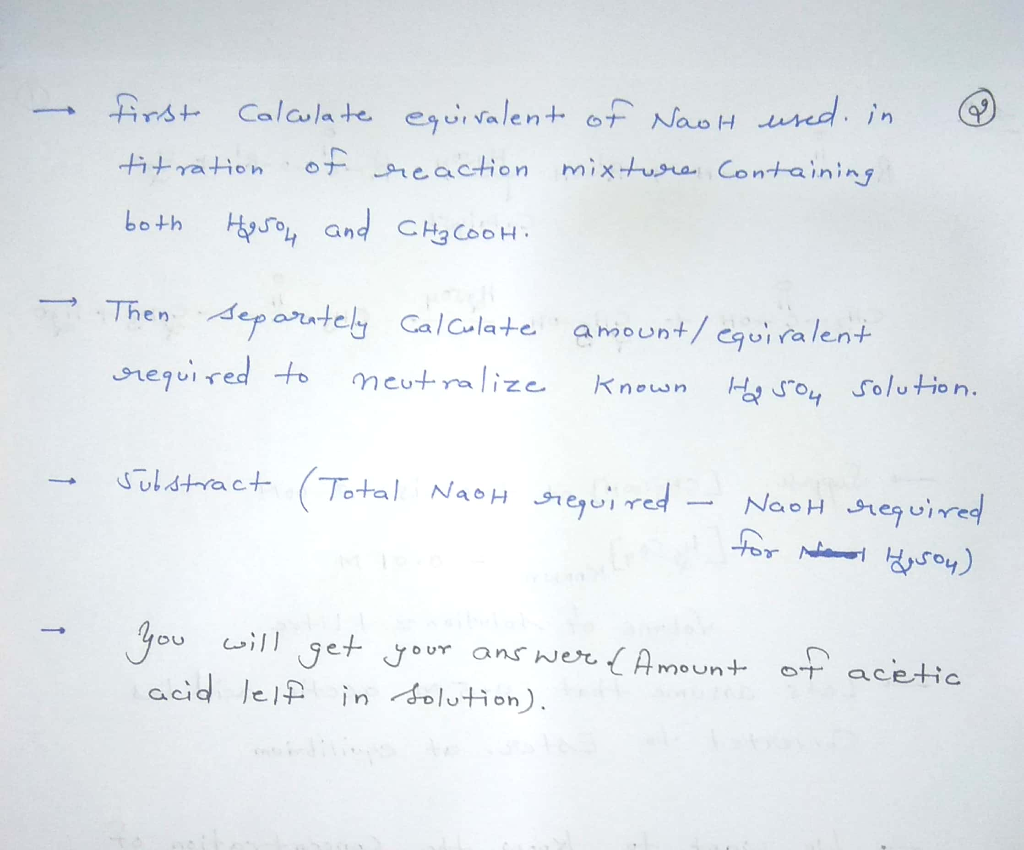 → first Calculate equivalent of NaOH used. in ②
titration of reaction mixture Containing
both H2SO4 and CH3COOH.
→ Then separately Calculate amount/equivalent
required to neutralize Known H2SO4 solution.
→ Substract (Total NaOH required – NaOH required
for H2SO4)
→ You will get your answer (Amount of acetic
acid left in solution).